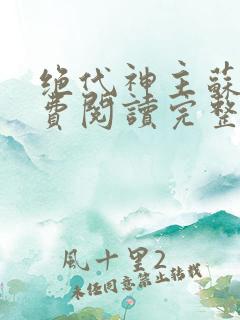 绝代神主蘇
費閱讀完整
風十里2
未经同意禁止转载